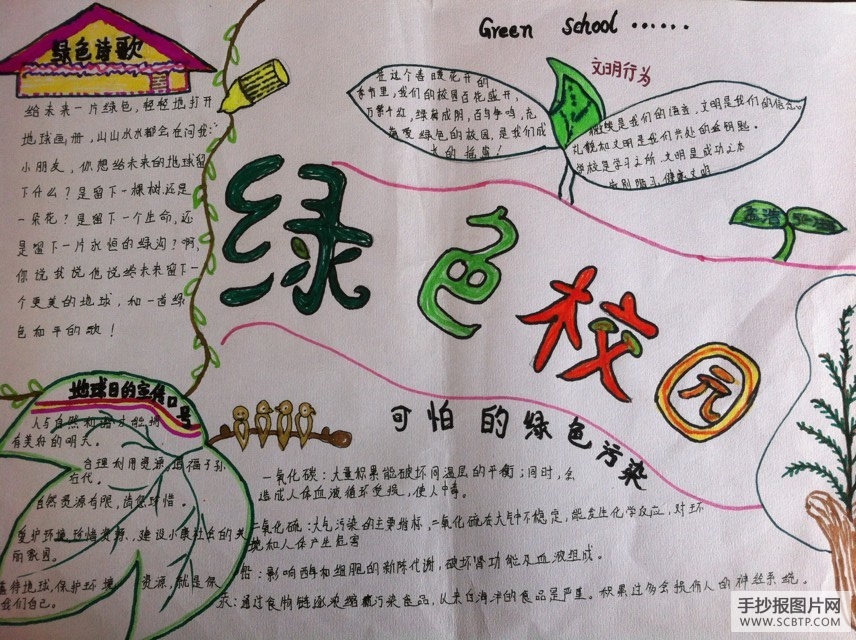 Green School ......
绿色诗歌
给未来一片绿色,轻轻地打开
地球画册,山山水水都会在问我:
小朋友,你想给未来的地球留
下什么?是留下一棵树,还是
一朵花?是留下一个生命,还
是留下一片永恒的绿洵?啊,
你说我说他说给未来留下一
个更美的地球,和一首绿
色和平的歌!
在这个春暖花开的
季节里,我们的校园百花盛开,
万紫千红,绿树成阴,百鸟争鸣,
绿色的校园,是我们成
长的摇篮!
文明行为
是我们的语言,文明是我们的信念。
礼貌和文明是我们共处的金钥匙。
学校是学习之所,文明是成功之本
告别陋习,健康文明
绿色校园
元
地球日的宣传口号
人与自然和
有美好的明天。
合理利用资源,造福子孙
后代。
自然资源有限,请您珍惜。
爱护环境,珍惜资源,建设小康社会的美
丽家园。
善待地球,保护环境 资源,就是保
我们自己。
可怕的绿色污染
一氧化碳:大量积累能破坏同温层的平衡;同时,会
造成人体血液循环受损,使人中毒。
二氧化硫:大气污染的主要指标,二氧化硫在大气中不稳定,能发生化学反应,对环
境和人体产生危害
铅:影响酶和细胞的新陈代谢,破坏肾功能及血液组成。
汞:通过食物链逐级浓缩污染食品,从来自海洋的食品是严重。积累过多会损伤人的神经系统。
手抄报图片网
WWW.SCBTP.COM